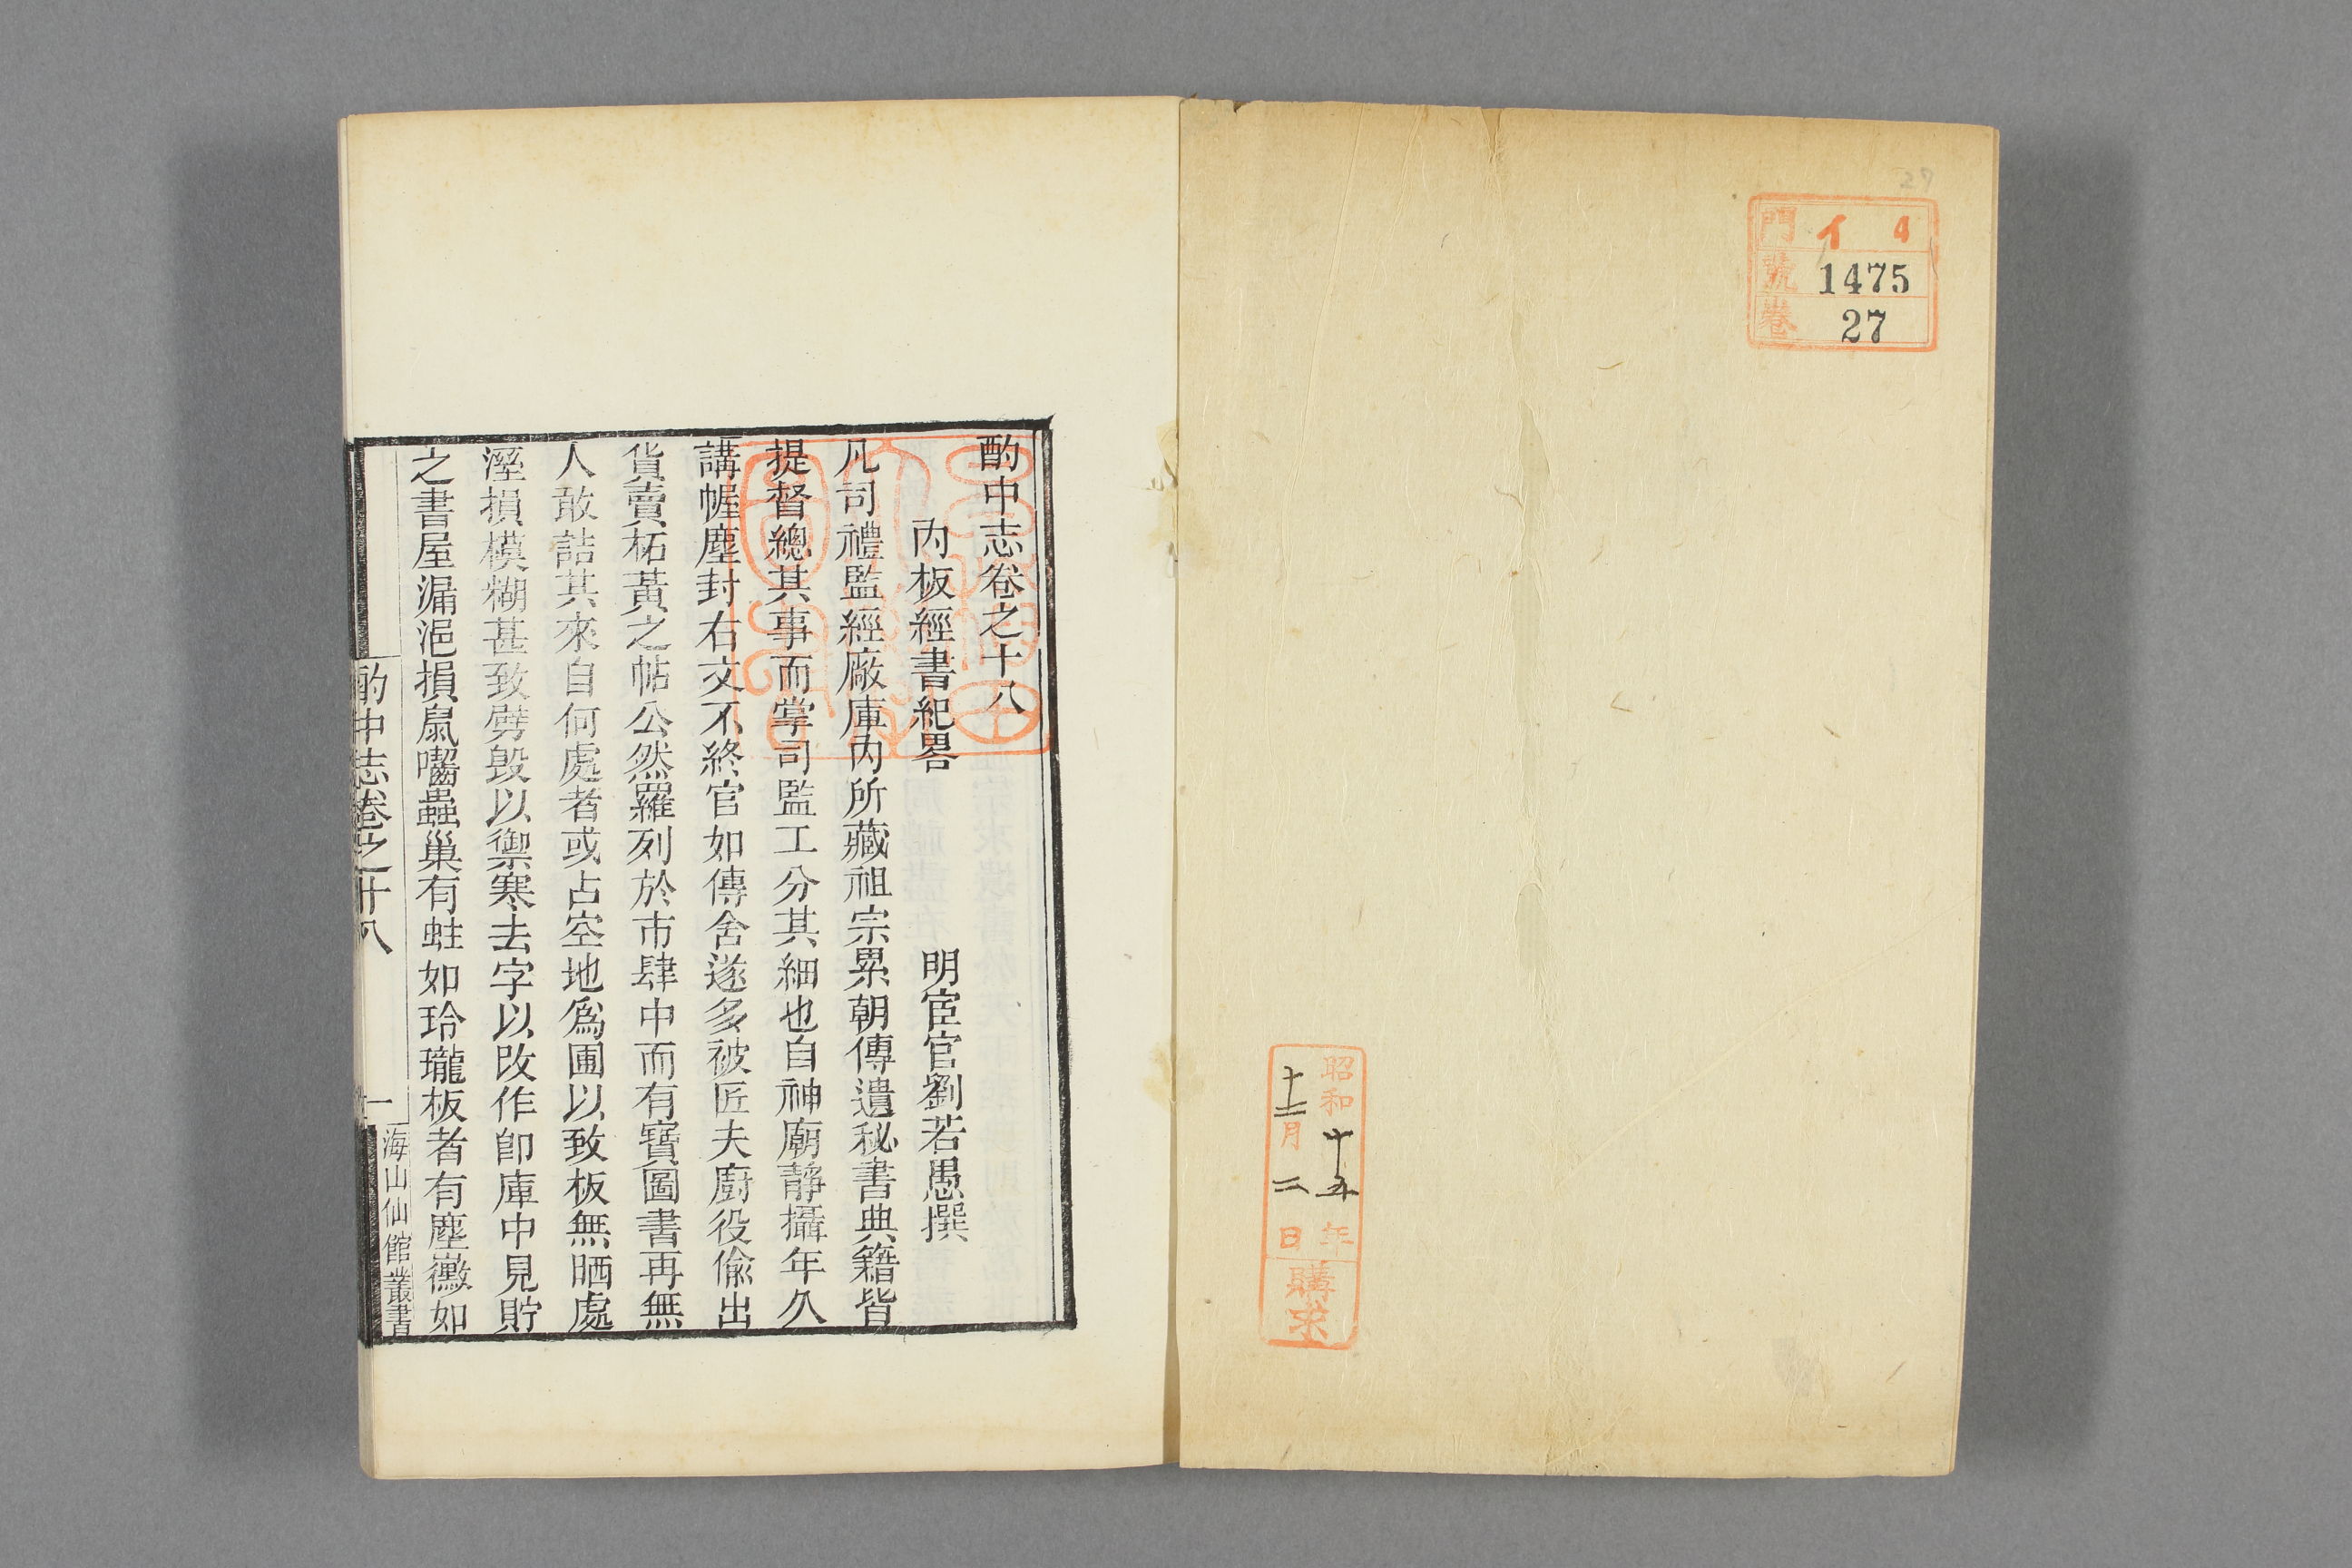 27
門 イ 4
號 1475
卷 27
昭和十五年
十二月二日
購求
酌中志卷之十八
內板經書紀畧
明宦官劉若愚撰
凡司禮監經廠庫內所藏祖宗累朝傳遺秘書典籍皆
提督總其事而掌司監工分其細也自神廟靜攝年久
講幄塵封右文不終官如傳舍遂多被匠夫廚役偷出
貨賣柘黃之帖公然羅列於市肆中而有寶圖書再無
人敢詰其來自何處者或占空地爲圃以致板無晒處
溼損模糊甚致劈毀以禦寒去字以改作卽庫中見貯
之書屋漏浥損鼠囓蟲巢有蛀如玲瓏板者有塵黴如
酌中志卷之十八
一
海山仙館叢書